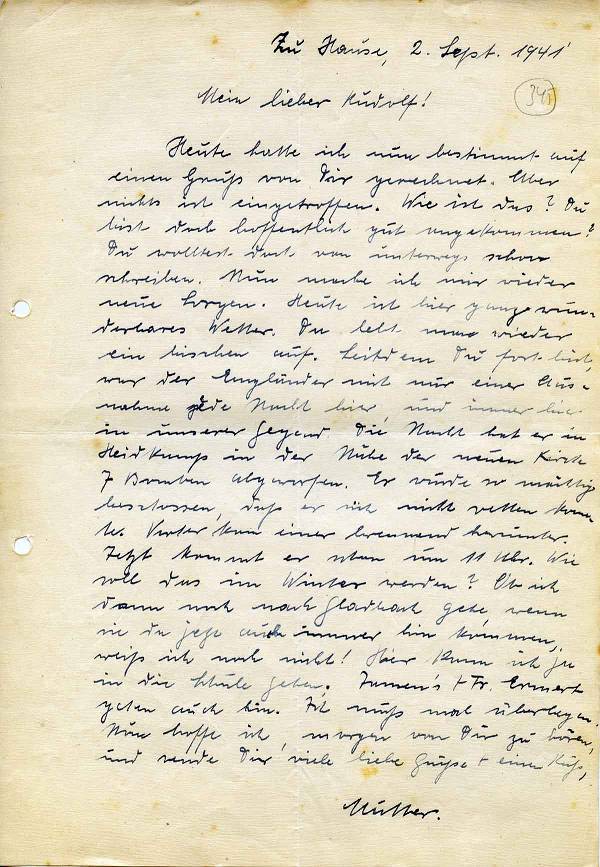 Zu Hause, 2. Sept. 1941
345
Mein lieber Rudolf!
Heute hatte ich nun bestimmt auf
einen Gruß von Dir gerechnet. Aber
nichts ist eingetroffen. Wie ist das? Du
bist doch hoffentlich gut angekommen?
Du wolltest doch von unterwegs schon
schreiben. Nun mache ich mir wieder
neue Sorgen. Heute ist hier ganz wun-
derbares Wetter. Da lebt man wieder
ein bischen auf. Seitdem Du fort bist,
war der Engländer mit nur einer Aus-
nahme jede Nacht hier, und immer hier
in unserer Gegend. Die Nacht hat er in
Heidkamp in der Nähe der neuen Kirche
7 Bomben abgeworfen. Er wurde so mächtig
beschossen, daß er sich nicht retten konn-
te. Vorher kam einer brennend herunter.
Jetzt kommt er schon um 11 Uhr. Wie
soll das im Winter werden? Ob ich
dann noch nach Gladbach gehe, wenn
sie da jetzt auch immer hin kommen,
weiß ich noch nicht! Hier kann ich ja
in die Schule gehen. + Fr.
gehen auch hin. Ich muß mal überlegen.
Nun hoffe ich, morgen von Dir zu hören,
und sende Dir viele liebe Grüße + einen Kuß,
Mutter.